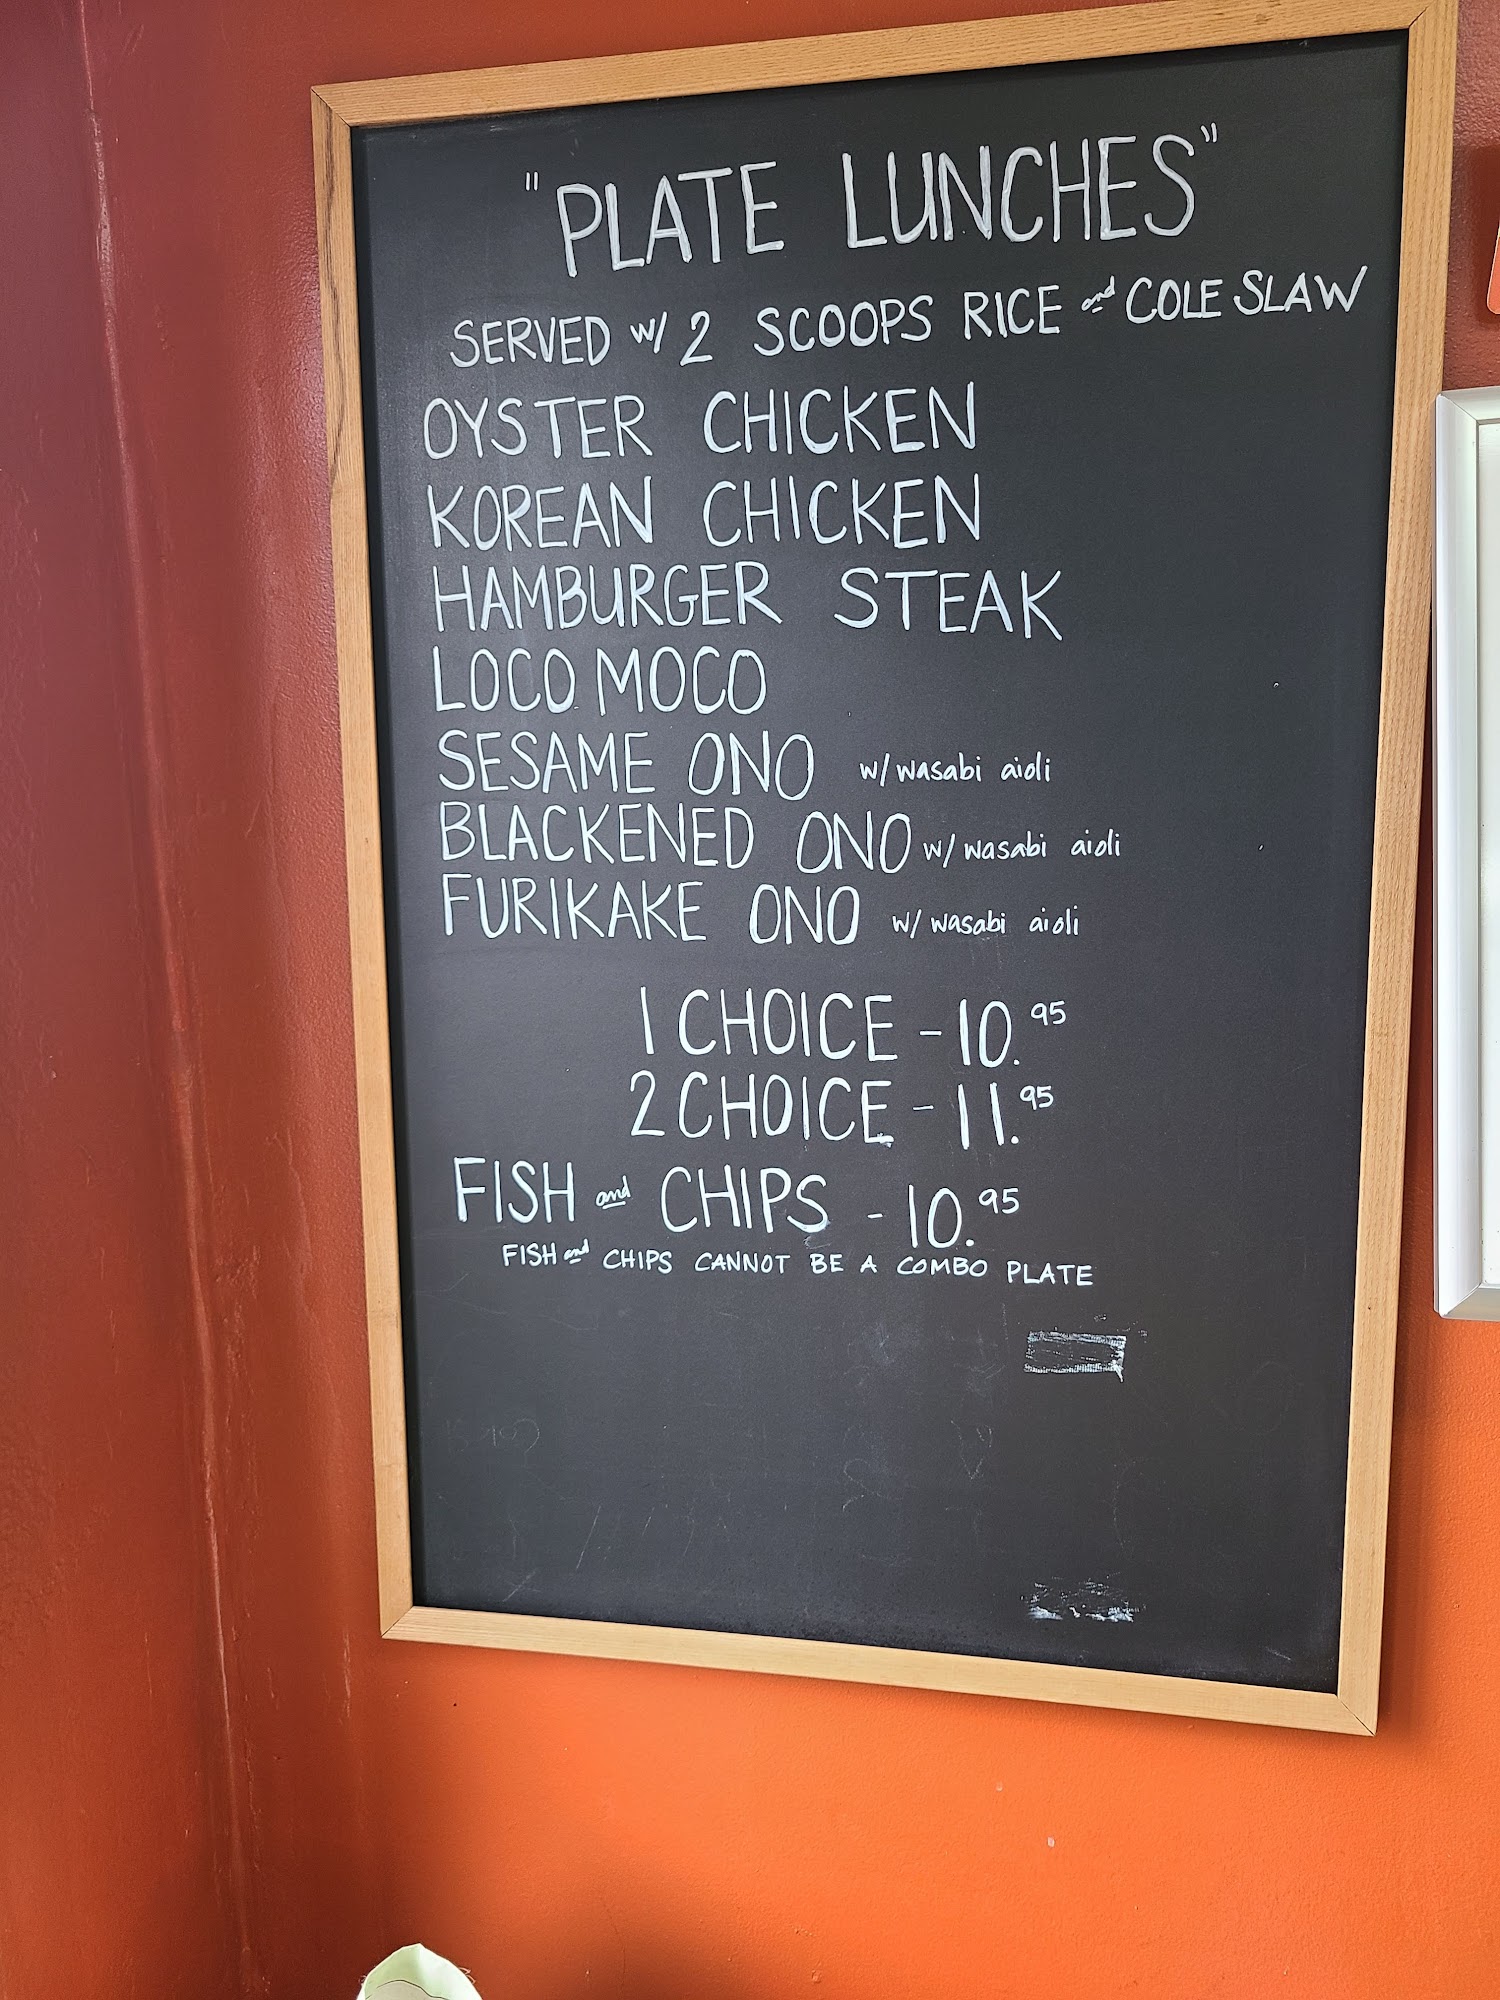 "PLATE LUNCHES"
SERVED w/ 2 SCOOPS RICE and COLE SLAW
OYSTER CHICKEN
KOREAN CHICKEN
HAMBURGER STEAK
LOCO MOCO
SESAME ONO w/ wasabi aioli
BLACKENED ONO w/ wasabi aioli
FURIKAKE ONO w/ wasabi aioli
1 CHOICE - 10.95
2 CHOICE - 11.95
FISH and CHIPS - 10.95
FISH and CHIPS CANNOT BE A COMBO PLATE